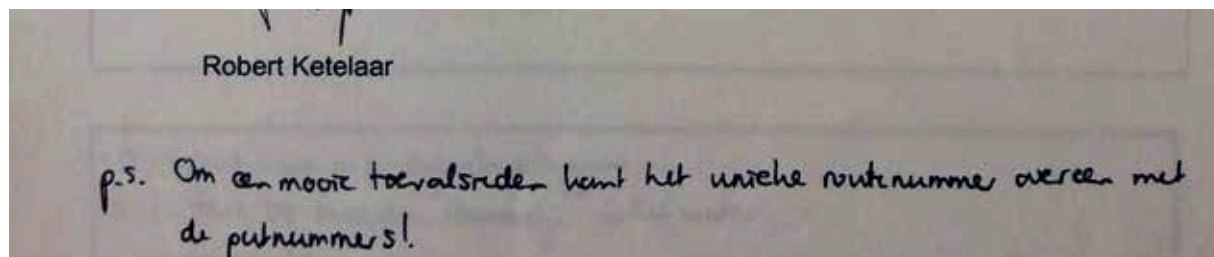 Robert Ketelaar
p.s. Om een mooie toevalsreden komt het unieke routenummer overeen met
de putnummers!